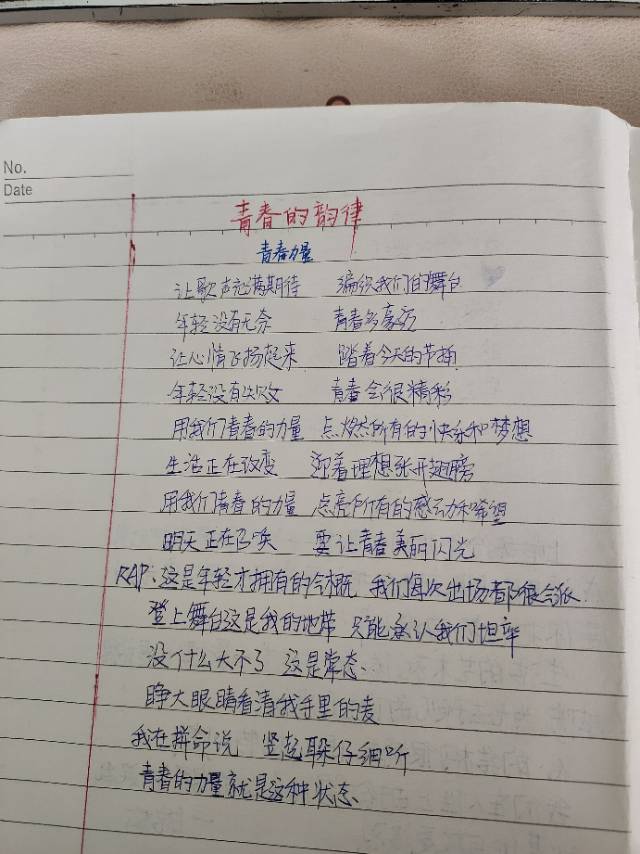 No.
Date
青春的韵律
青春力量
让歌声充满期待 编织我们的舞台
年轻没有无奈 青春多豪迈
让心情飞扬起来 踏着今天的节拍
年轻没有失败 青春会很精彩
用我们青春的力量 点燃所有的快乐和梦想
生活正在改变 迎着理想张开翅膀
用我们青春的力量 点亮所有的感动和希望
明天正在召唤 要让青春美丽闪光
RAP:这是年轻才拥有的气概 我们每次出场都很气派
登上舞台这是我的地带 只能承认我们坦率
没什么大不了 这是常态
睁大眼睛看清我手里的麦
我在拼命说 竖起耳朵仔细听
青春的力量就是这种状态